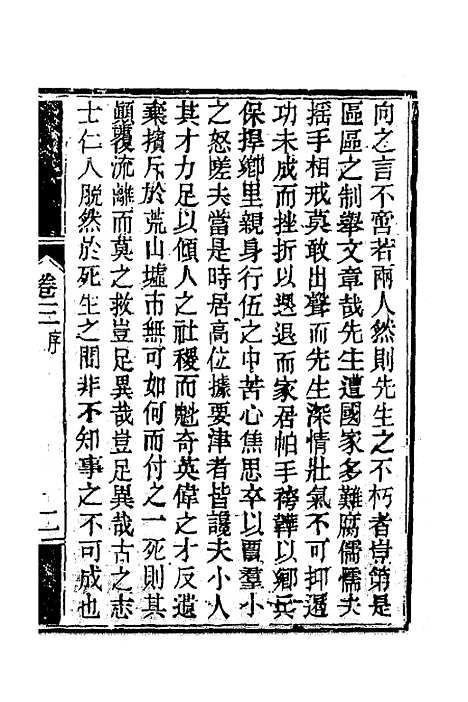 向之言不啻若兩人然則先生之不朽者豈第是
區區之制舉文章哉先生遭國家多難腐儒懦夫
搖手相戒莫敢出聲而先生深情壯氣不可抑遏
功未成而挫折以退而家居帕手袴鞾以鄉兵
保捍鄉里親身行伍之中苦心焦思卒以罹羣小
之怒嗟夫當是時居高位據要津者皆讒夫小人
其才力足以傾人之社稷而魁奇英偉之才反遺
棄擯斥於荒山墟市無可如何而付之一死則其
顛覆流離而莫之救豈足異哉豈足異哉古之志
士仁人脫然於死生之間非不知事之不可成也
卷三 序